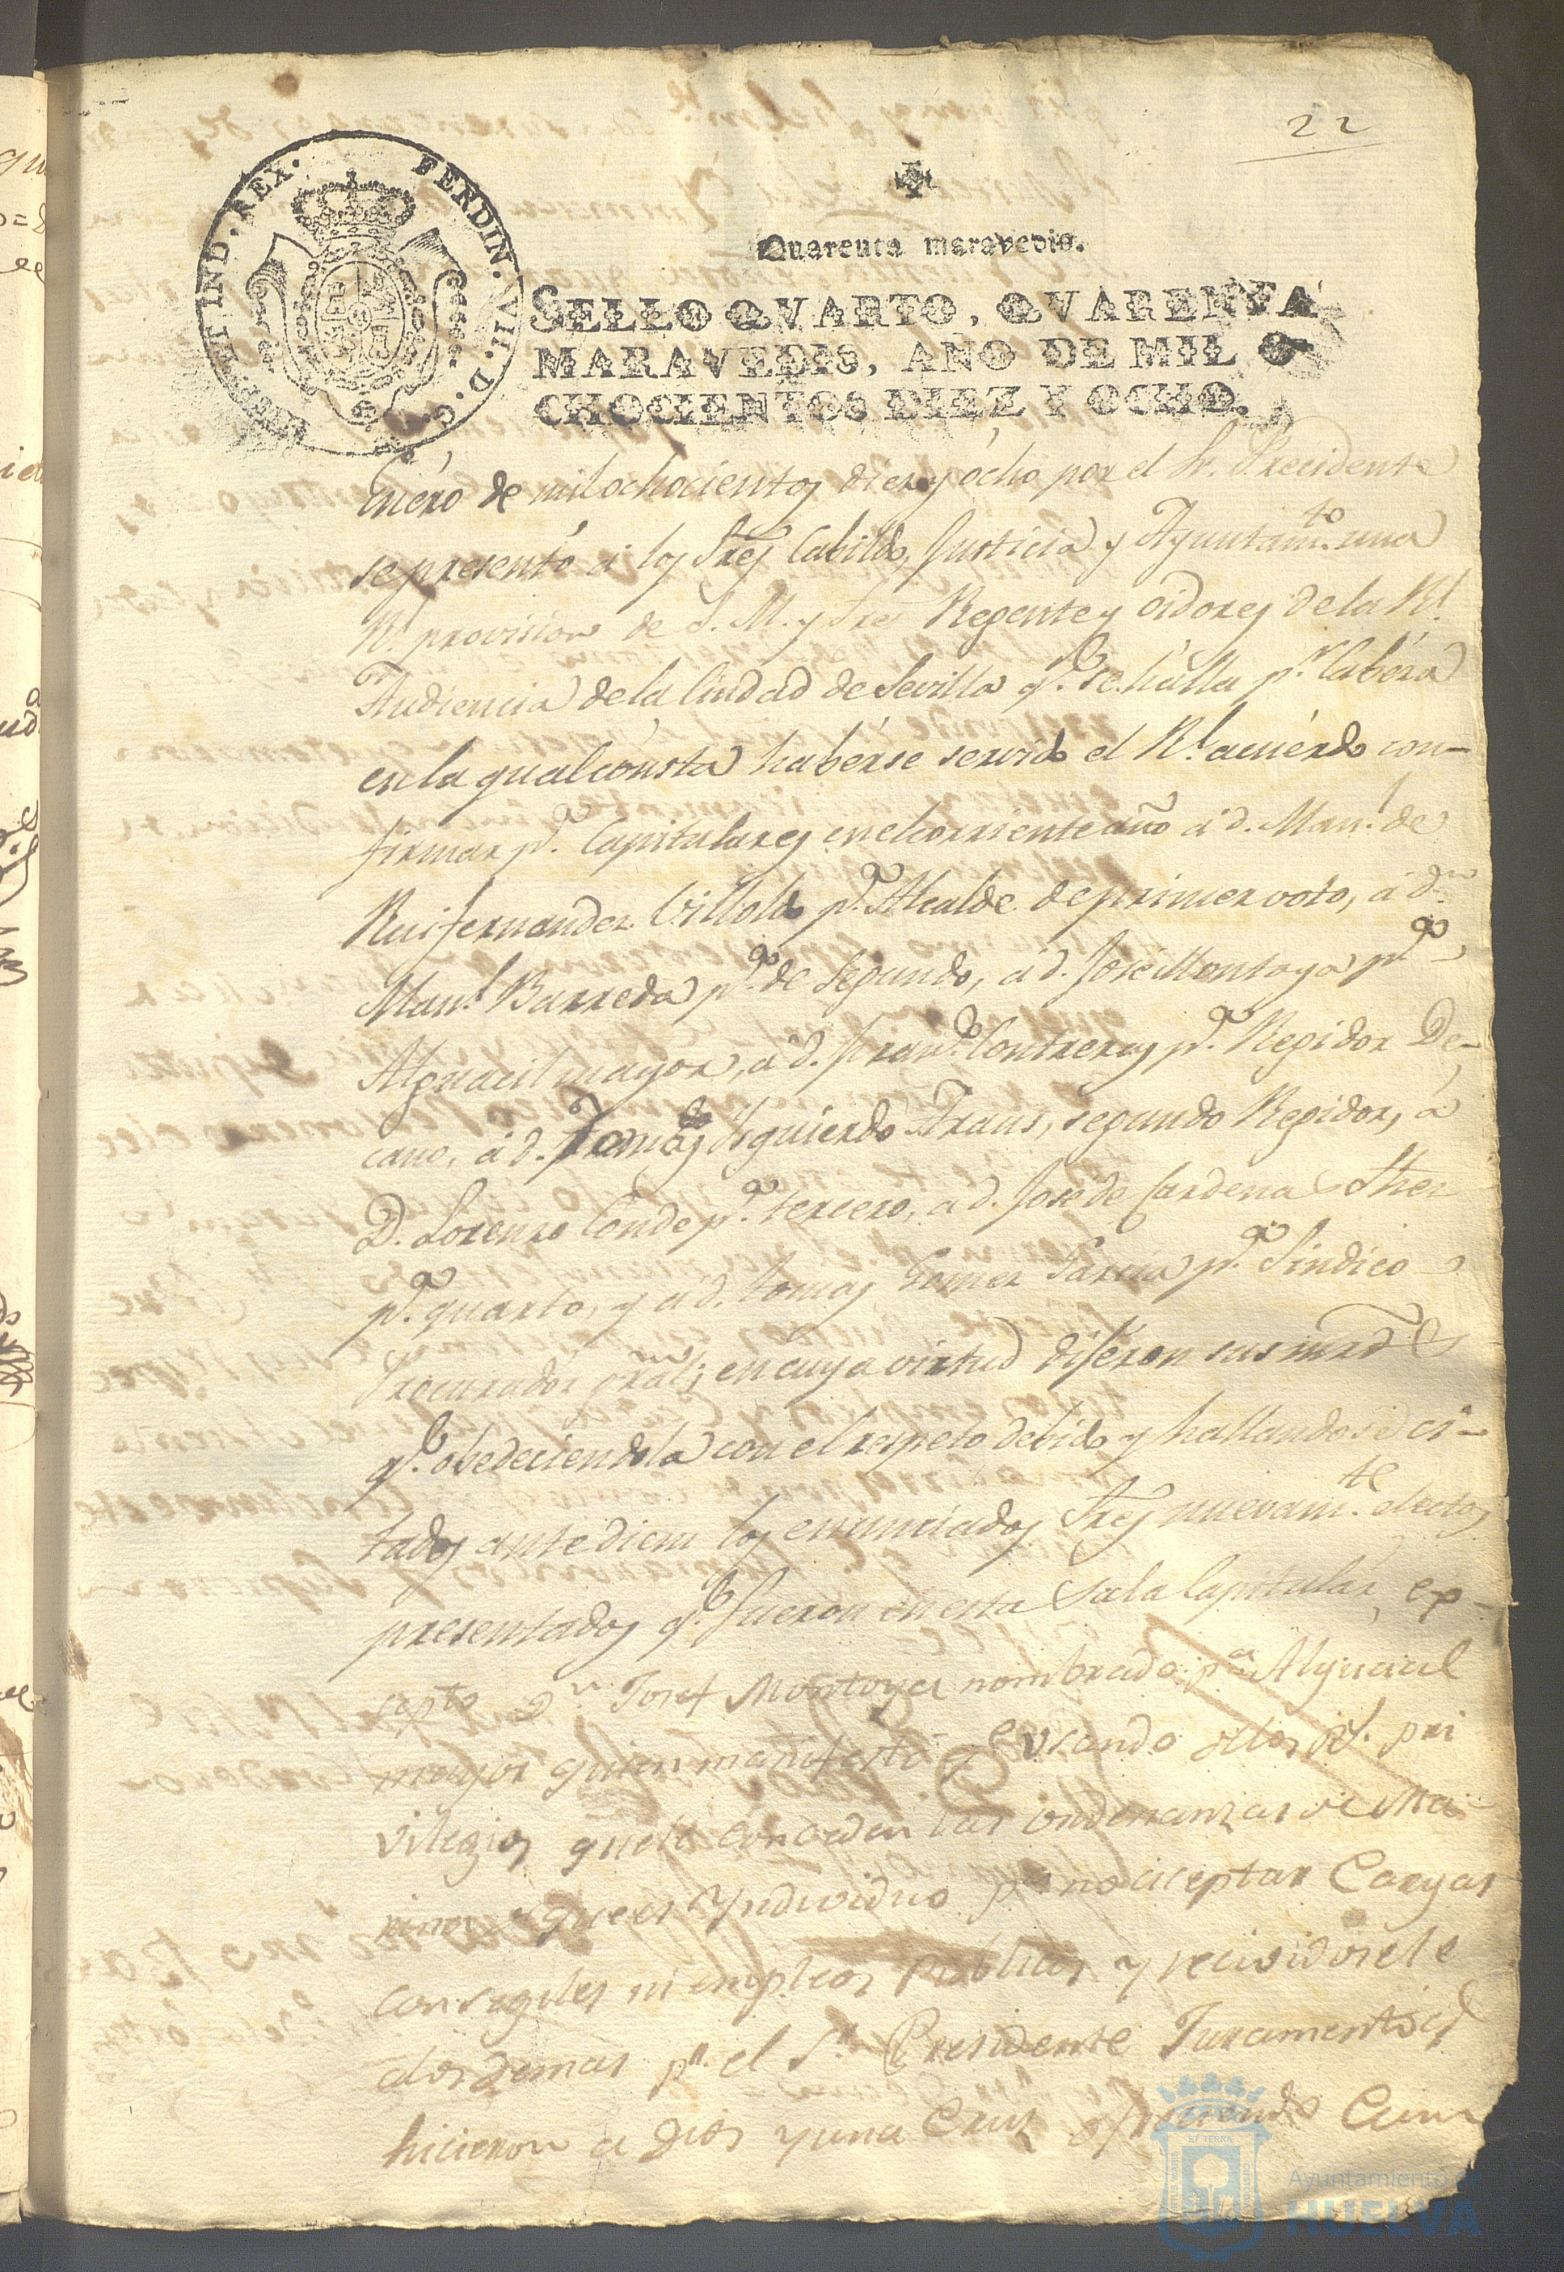 22
HISP. ET IND. REX. FERDIN. VII. D. G.
Quarenta maravedis.
SELLO QVARTO, QVARENTA
MARAVEDIS, AÑO DE MIL O-
CHOCIENTOS DIEZ Y OCHO.
Enéro de mil ochocientos diez y ócho por el Sr. Precidente
se presentó á los Sres Cabildo, Justicia y Ayuntamto. una
Rl. provision de S. M. y Sres Regente y oidores de la Rl.
Audiencia de la Ciudad de Sevilla qe. se hálla pr. Cabéza
en la qual cónsta habérse servido el Rl. acuérdo con-
firmar pa. Capitulares en el corriente año á d. Manl. de
Rui fernandez Villoldo pa. Alcalde de primer voto, á dn.
Manl. Barreda pa. de Segundo, á d. José Montoya pa.
Alguacil mayor, á d. Franco. Contreras pa. Regidor De-
cano, á d. Tomás Izquierdo Arans, segundo Regidor, á
D. Lorenzo Conde pa. tercero, a d. José de Cardena
pa. quarto, y á d. tomas Gomez Garcia pa. Sindico
Procurador gral; en cuya virtud dijéron sus mrds
qe. obedeciendola con el respeto debido y hallandose ci-
tados ante diem los enunciados Sres nuevamte. electos
presentados qe. fueron en esta Sala Capitular, ex-
septo Dn. Josef Montoya nombrado pa. Alguacil
mayor quien manifestó qe. usando de los pri
vilegios que le conceden las ordenanzas de Ma-
rina de que es Yndividuo pa. no aceptar Cargas
consegiles ni empleos publicos y recividosele
a los demas pr. el Sr. Presidente Juramento qe.
hicieron a Dios y una Cruz ofreciendo Cum
Ayuntamiento de
HUELVA